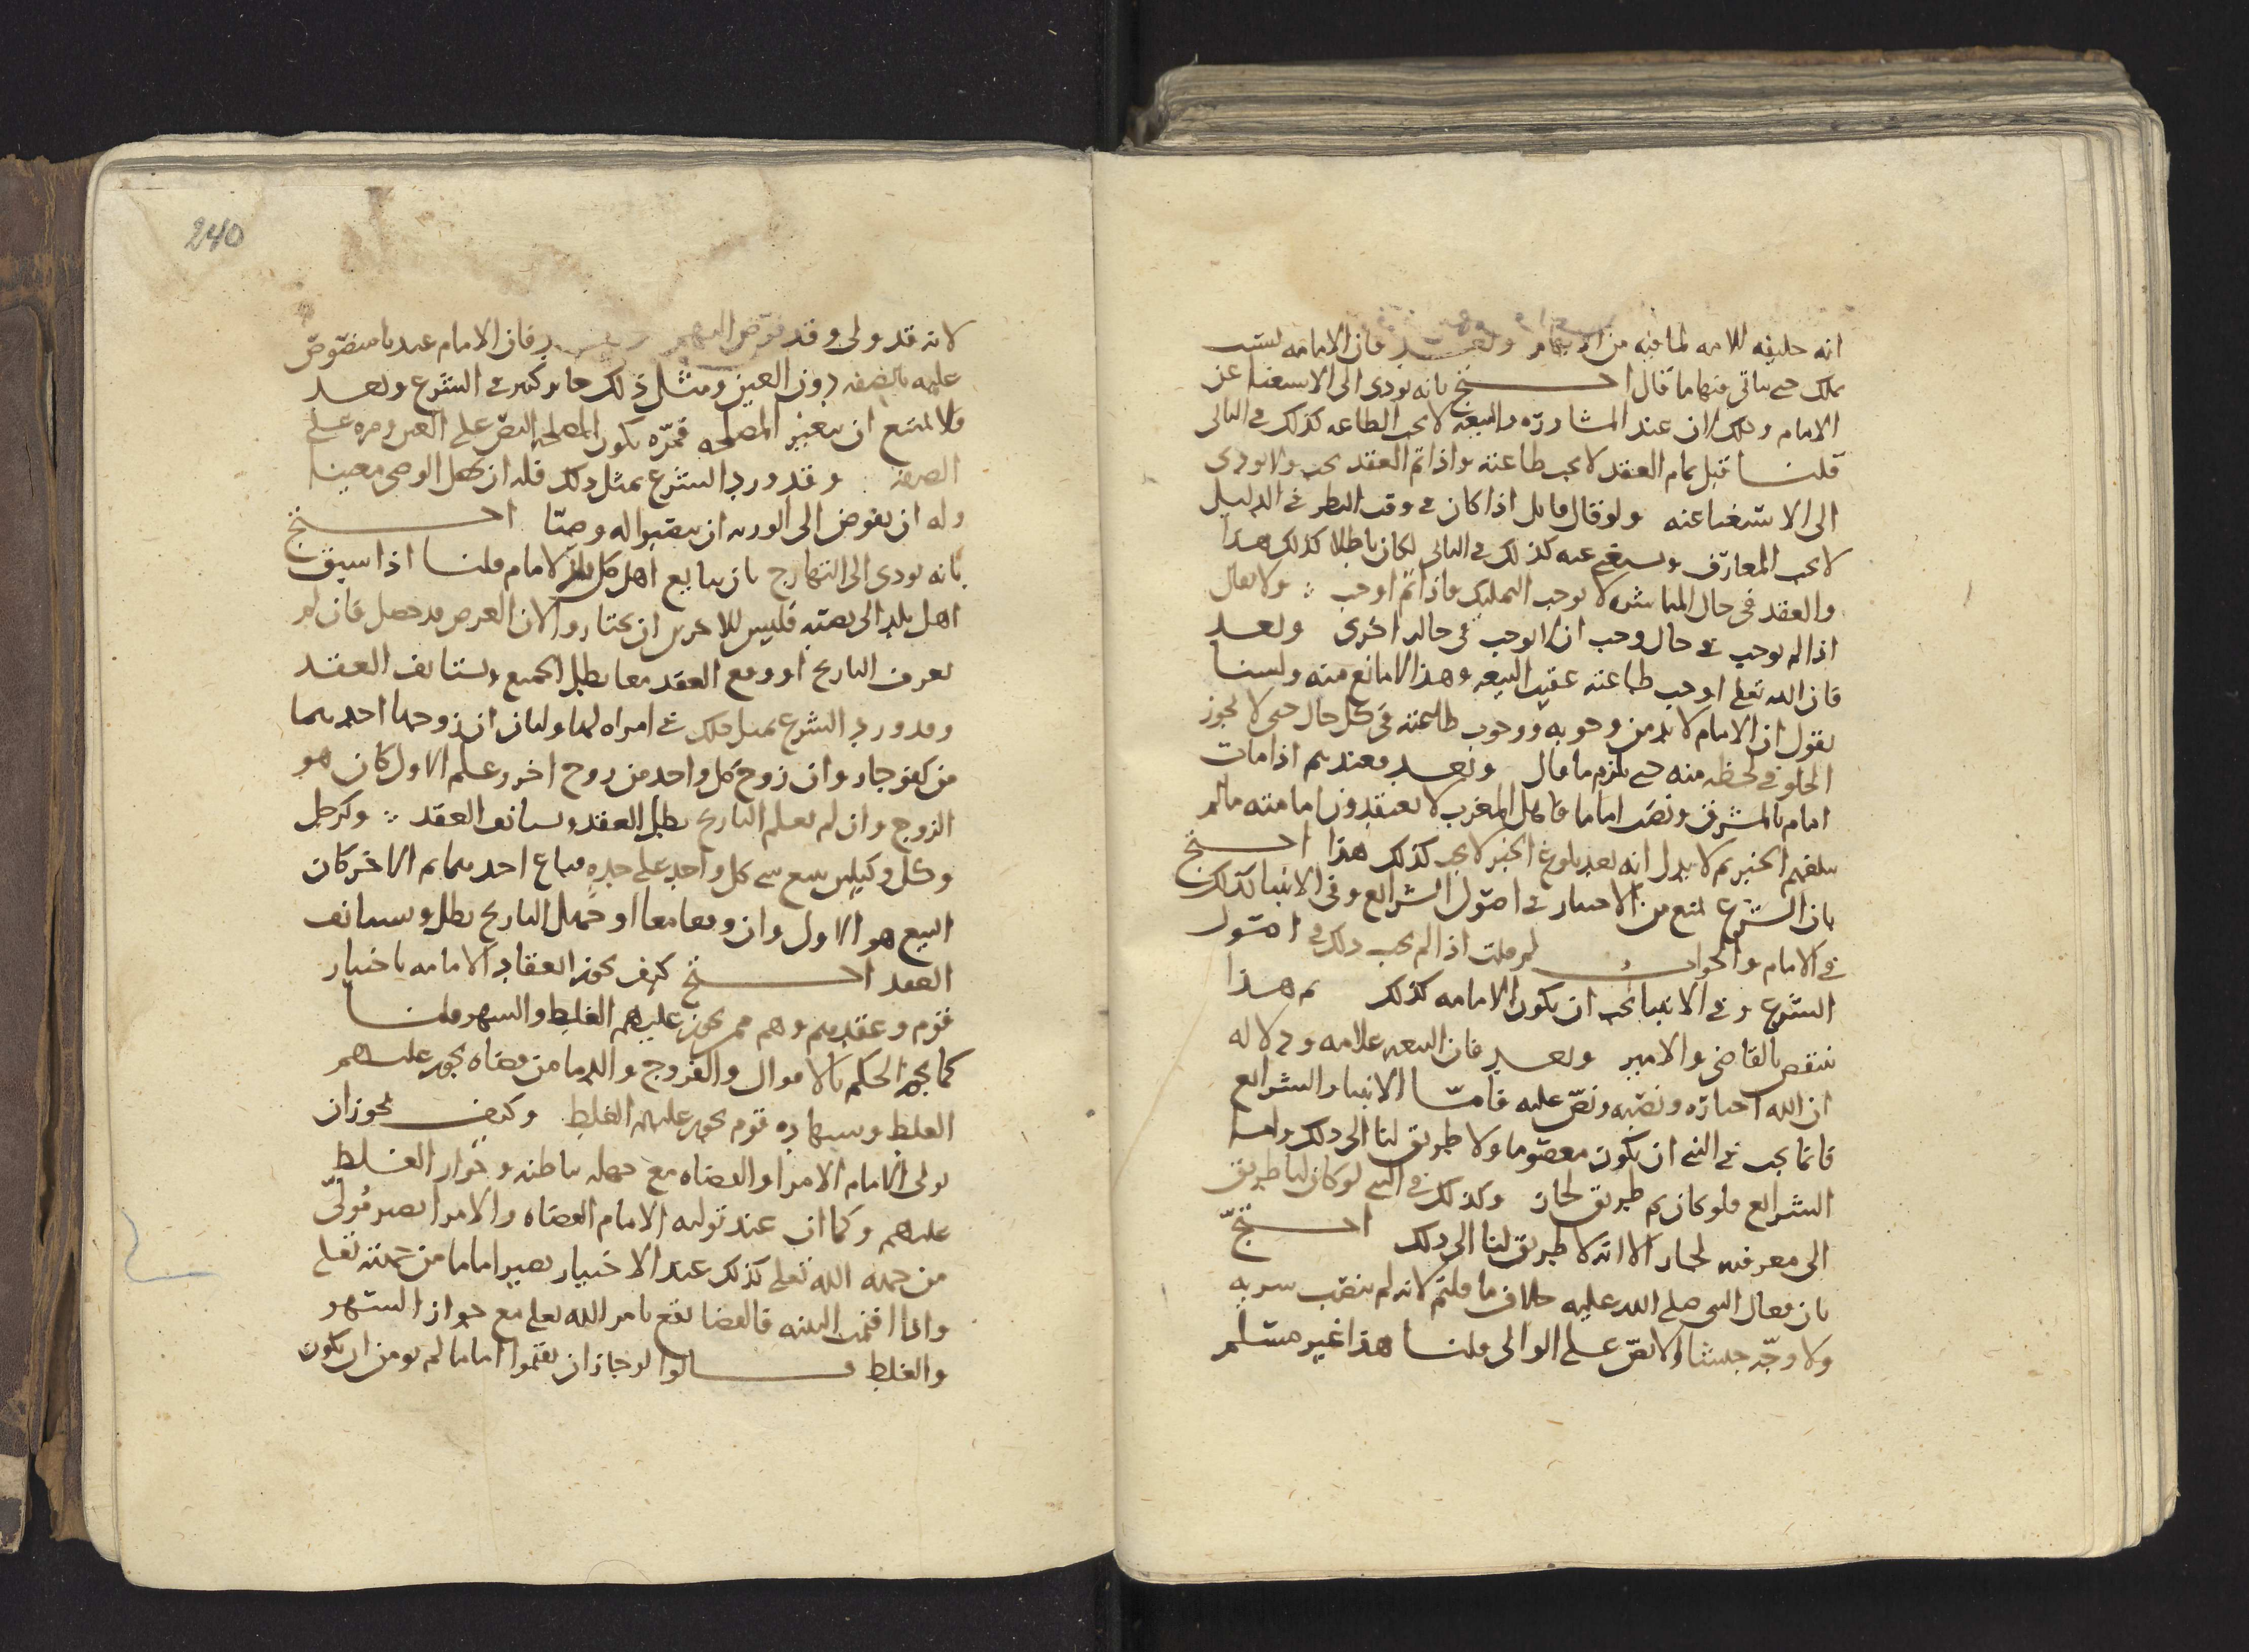 انه خليفه للامه لما فيه من الايهام وبعد فان الامامه ليست
بملك حتى ياتي فيها ما قال احتج بانه يودي الى الاستغنا عن
الامام وذلك ان عند المشاورة والبيعه لا يجب الطاعه كذلك في التالي
قلنا قبل تمام العقد لا يجب طاعته واذا تم العقد يجب ولا يودي
الى الاستغنا عنه ولو قال قايل اذا كان في وقت النظر في الدليل
لا يجب المعارف ويستغني عنه كذلك في التالي لكان باطلا كذلك هذا
والعقد في حال المباشره لا يوجب التمليك فاذا تم اوجب ولا يقال
اذا لم يوجب في حال وجب ان لا يوجب في حاله اخرى وبعد
فان الله تعلى اوجب طاعته عقيب البيعه وهذا لا مانع منه ولسنا
نقول ان الامام لا بد من وجوبه ووجوب طاعته في كل حال حتى لا يجوز
الخلو في لحظه منه حتى يلزم ما قال وبعد فعندهم اذا مات
امام بالمشرق ونصب اماما فاهل المغرب لا يعتقدون امامته ما لم
يبلغهم الخبر ثم لا يدل انه بعد بلوغ الخبر لا يجب كذلك هذا احتج
بان الشرع منع من الاختيار في اصول الشرايع وفي الانبيا كذلك
في الامام والجواب لم قلت اذا لم يجب ذلك في اصول
الشرع وفي الانبيا يجب ان يكون الامامه كذلك ثم هذا
ينتقض بالقاضي والامير وبعد فان البيعه علامه ودلاله
ان الله اختاره ونصبه ونص عليه فاما الانبيا والشرايع
فانما يجب في النبي ان يكون معصوما ولا طريق لنا الى ذلك واما
الشرايع فلو كان ثم طريق لجاز وكذلك في النبي لو كان لنا طريق
الى معرفته لجاز الا انه لا طريق لنا الى ذلك احتج
بان فعال النبي صلى الله عليه خلاف ما قلتم لانه لم ينصب سريه
ولا وجه جيشا الا نص على الوالي قلنا هذا غير مسلم
240
لانه قد ولى وقد فوض اليهم وبعد فان الامام عندنا منصوص
عليه بالصفه دون العين ومثل ذلك جايز كثير في الشرع وبعد
فلا يمتنع ان يتغير المصلحه فمره يكون المصلحه النص على العين ومره على
الصفه وقد ورد الشرع بمثل ذلك فله ان يجعل الوصي معينا
وله ان يفوض الى الورثه ان ينصبوا له وصيا احتج
بانه يودي الى التهارج بان يبايع اهل كل بلد لامام قلنا اذا سبق
اهل بلد الى بيعته فليس للاخرين ان يختاروا لان الغرض قد حصل فان لم
يعرف التاريخ او وقع العقد معا بطل الجميع ويستانف العقد
وقد ورد الشرع بمثل ذلك في امراه لها وليان ان زوجها احدهما
من كفو جاز وان زوج كل واحد من زوج اخر وعلم الاول كان هو
الزوج وان لم يعلم التاريخ بطل العقد ويستانف العقد وكرجل
وكل وكيلين ببيع شي كل واحد على حده فباع احدهما ثم الاخر كان
البيع هو الاول وان وقعا معا او جهل التاريخ بطل ويستانف
العقد احتج كيف يجوز انعقاد الامامه باختيار
قوم وعقدهم وهم ممن يجوز عليهم الغلط والسهو قلنا
كما يجوز الحكم بالاموال والفروج والدما من قضاه يجوز عليهم
الغلط وبشهاده قوم يجوز عليهم الغلط وكيف يجوز ان
يولي الامام الامرا والقضاه مع جهله بباطنه وجواز الغلط
عليهم وكما ان عند توليه الامام القضاه والامرا يصير مولى
من جهه الله تعلى كذلك عند الاختيار يصير اماما من جهته تعلى
واذا اقيمت البينه فالقضا يقع بامر الله تعلى مع جواز السهو
والغلط قالوا لو جاز ان يقيموا اماما لم يومن ان يكون